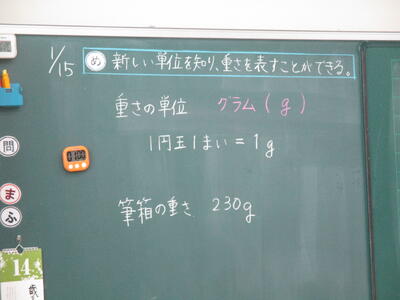 1/15 め 新しい単位を知り、重さを表すことができる。
重さの単位 グラム(g)
1円玉1まい=1g
問
筆箱の重さ 230g
ま
ふ
14